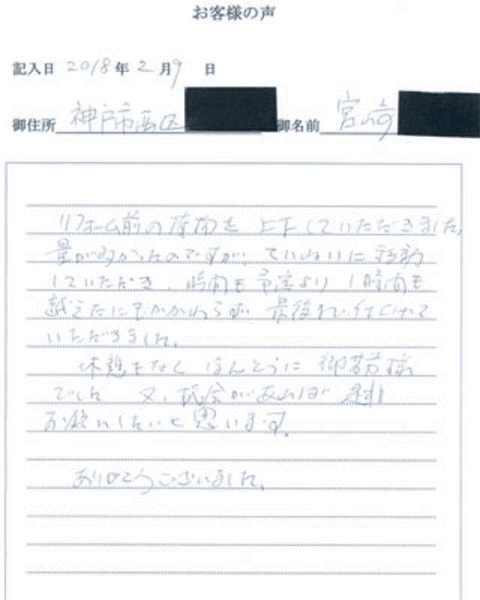 お客様の声
記入日 2018年 2月9 日
御住所 神戸市西区 御名前 宮崎
リフォーム前の荷物を 上下していただきました。
量が多かったのですが、ていねいに移動
していただき、時間も予定より 1時間も
越えたにもかかわらず 最後まで片づけて
いただきました。
休憩もなく ほんとうに 御苦労様
でした 又、機会があれば 是非
お願いしたいと思います。
ありがとうございました。